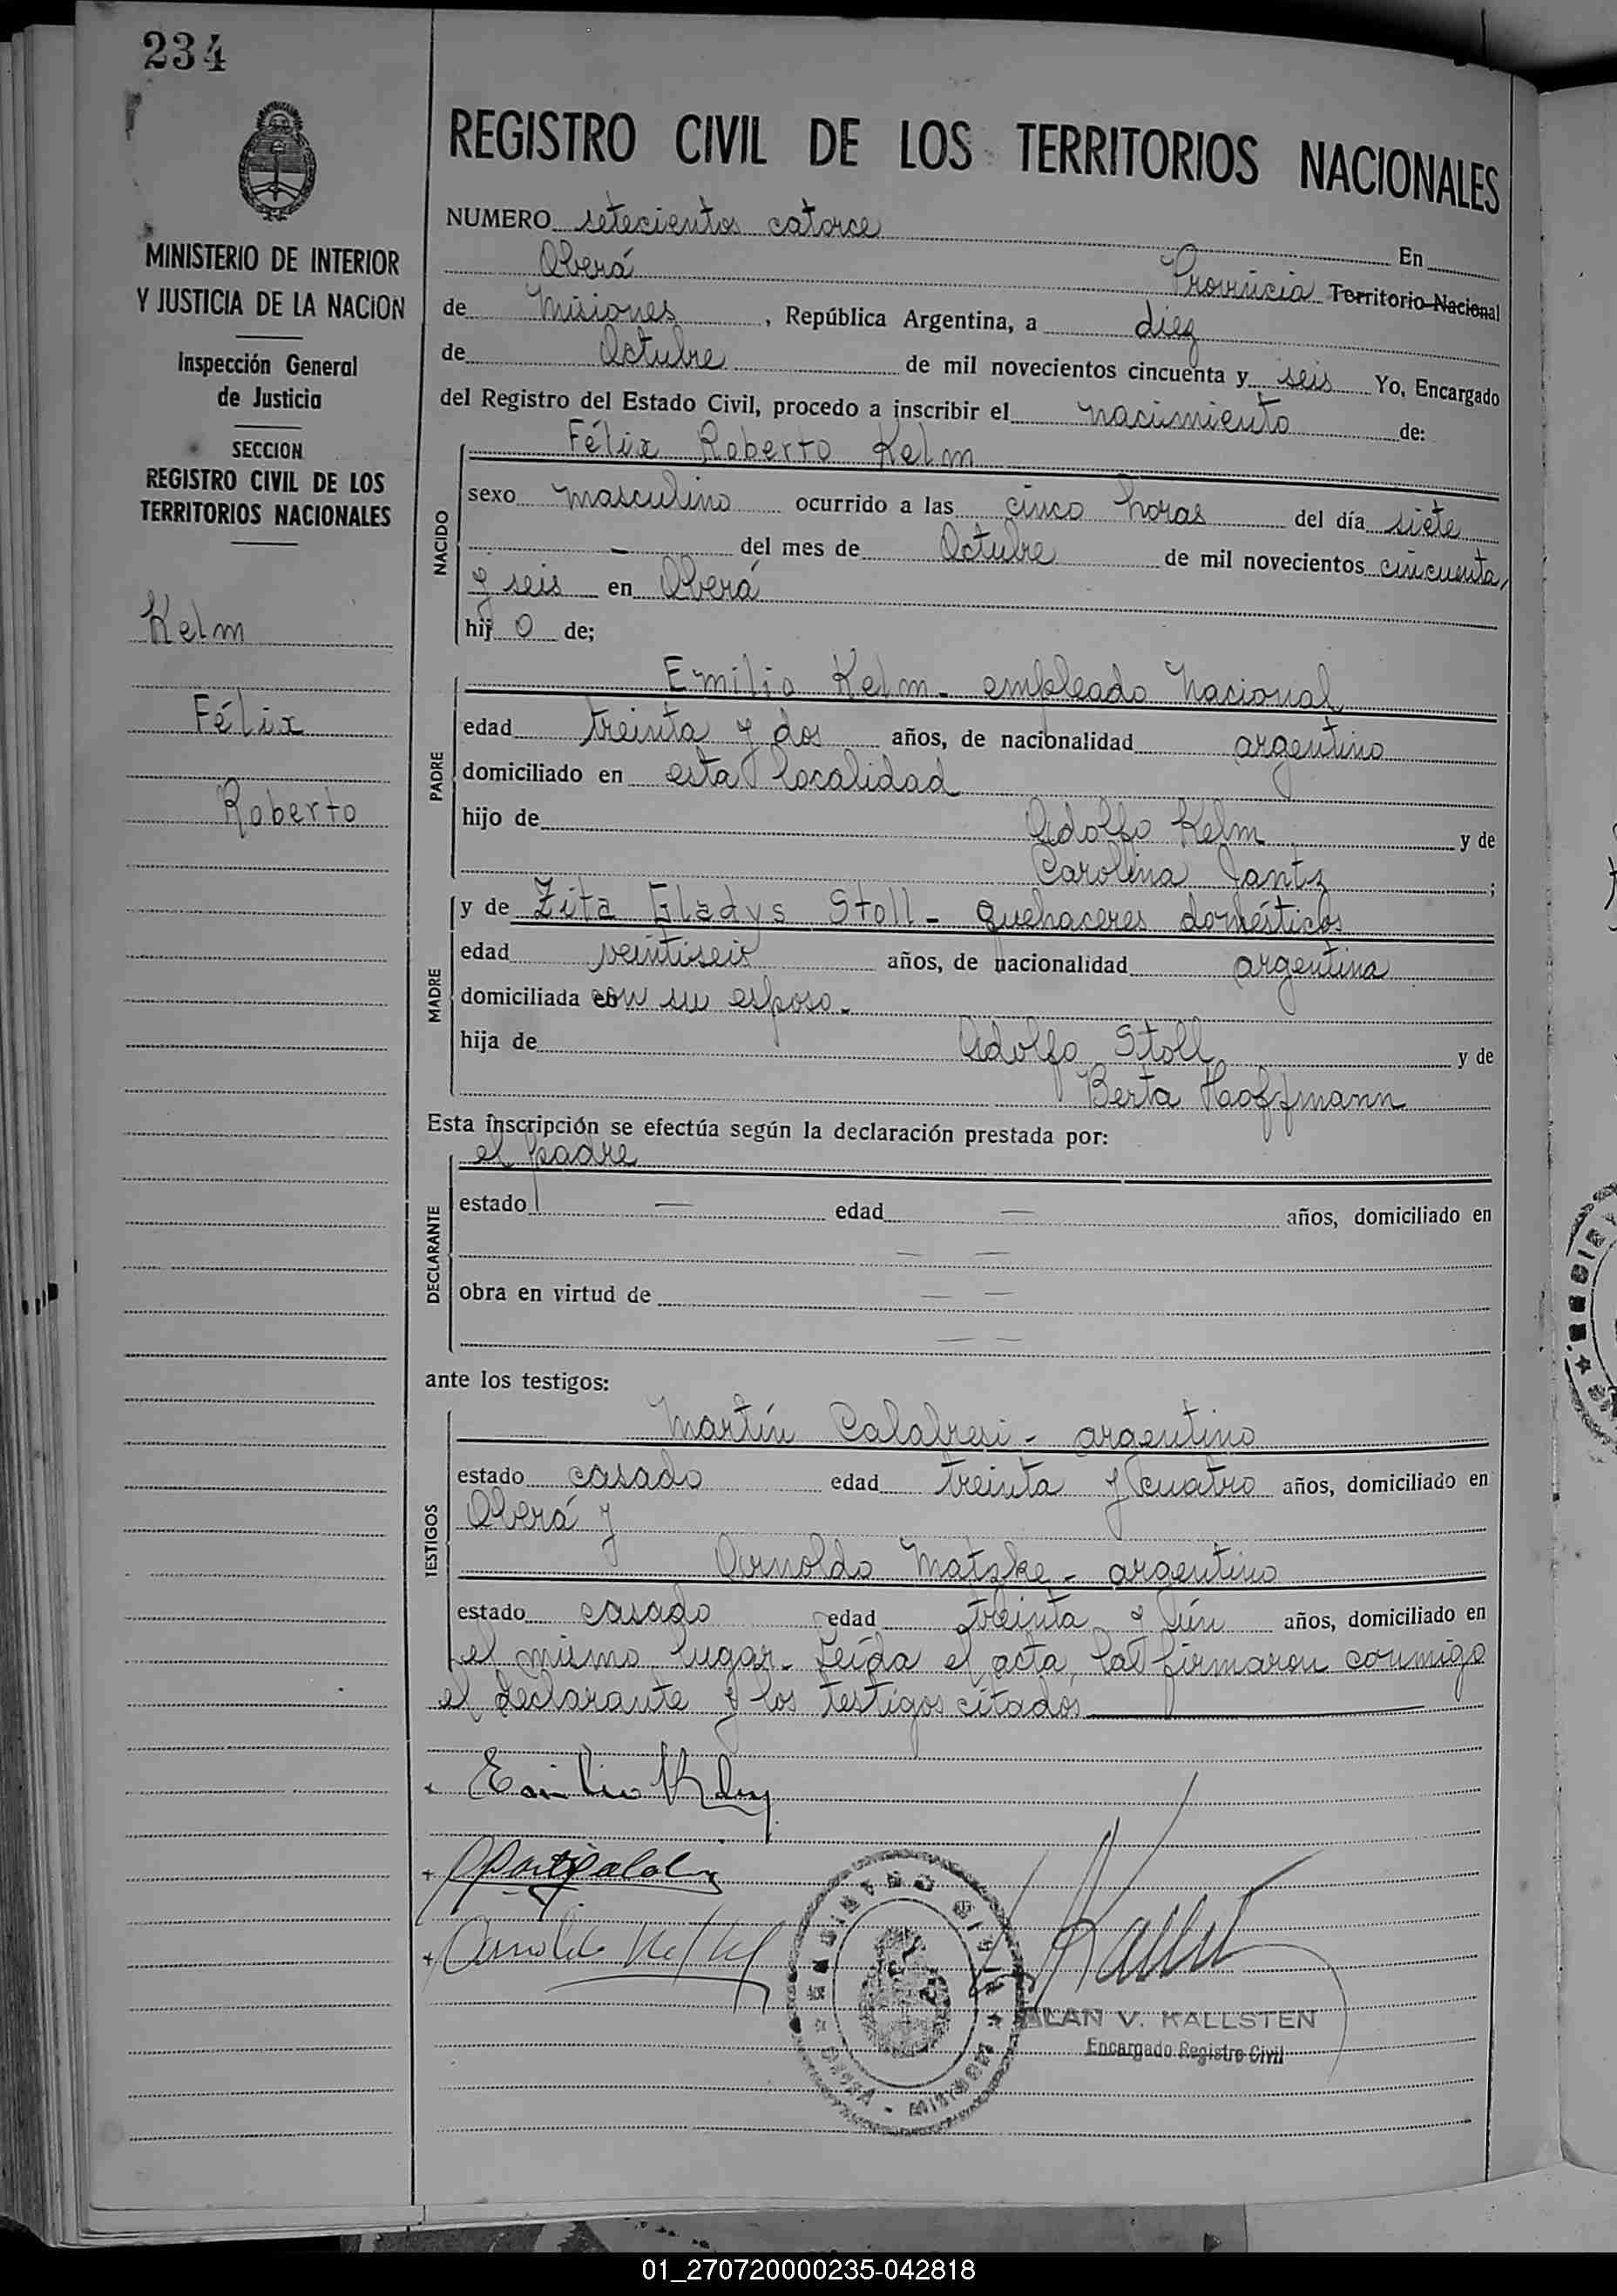 234
MINISTERIO DE INTERIOR
Y JUSTICIA DE LA NACION
Inspección General
de Justicia
SECCION
REGISTRO CIVIL DE LOS
TERRITORIOS NACIONALES
Kelm
Félix
Roberto
REGISTRO CIVIL DE LOS TERRITORIOS NACIONALES
NUMERO setecientos catorce En
Oberá Provincia Territorio Nacional
de Misiones, República Argentina, a diez
de Octubre de mil novecientos cincuenta y seis Yo, Encargado
del Registro del Estado Civil, procedo a inscribir el nacimiento de:
Félix Roberto Kelm
NACIDO
sexo masculino ocurrido a las cinco horas del día siete
— del mes de Octubre de mil novecientos cincuenta
y seis en Oberá
hijo de;
PADRE
Emilio Kelm - empleado Nacional
edad treinta y dos años, de nacionalidad argentino
domiciliado en esta localidad
hijo de Adolfo Kelm y de
Carolina Jantz;
MADRE
y de Zita Gladys Stoll - quehaceres domésticos
edad veintiseis años, de nacionalidad argentina
domiciliada con su esposo.
hija de Adolfo Stoll y de
Berta Hooffmann
Esta inscripción se efectúa según la declaración prestada por:
DECLARANTE
el padre
estado — edad — años, domiciliado en
— —
obra en virtud de — —
— —
ante los testigos:
TESTIGOS
Martín Calabresi - argentino
estado casado edad treinta y cuatro años, domiciliado en
Oberá y
Arnoldo Matzke - argentino
estado casado edad treinta y ún años, domiciliado en
el mismo lugar. Leída el acta, la firmaron conmigo
el declarante y los testigos citados
Emilio Kelm
ALAN V. KALLSTEN
Encargado Registro Civil
01_270720000235-042818